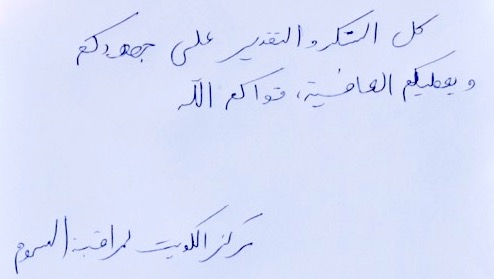 كل الشكر والتقدير على جهودكم
ويعطيكم العافية، قواكم الله
مركز الكويت لمراقبة السموم